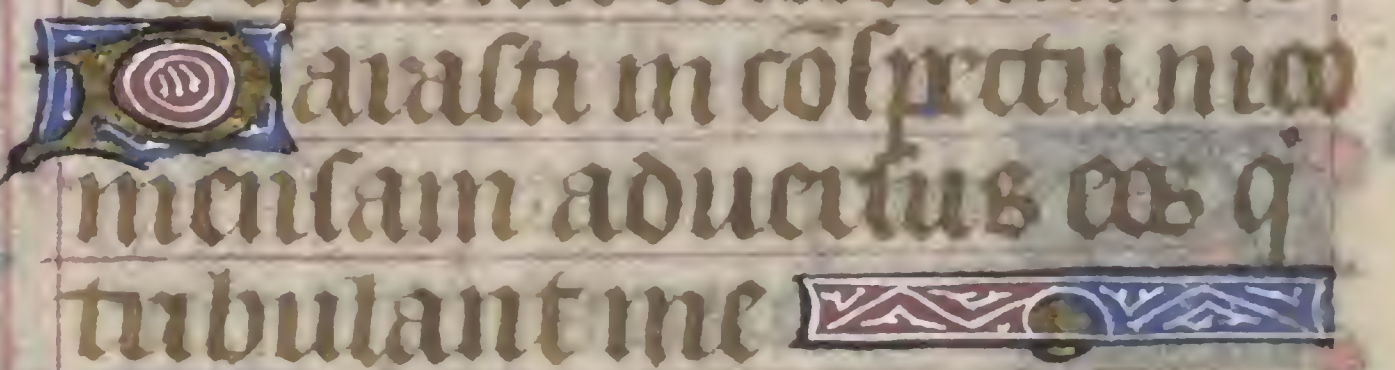 Parasti in cōspectu meo
mensam aduersus eos q̇
tribulant me